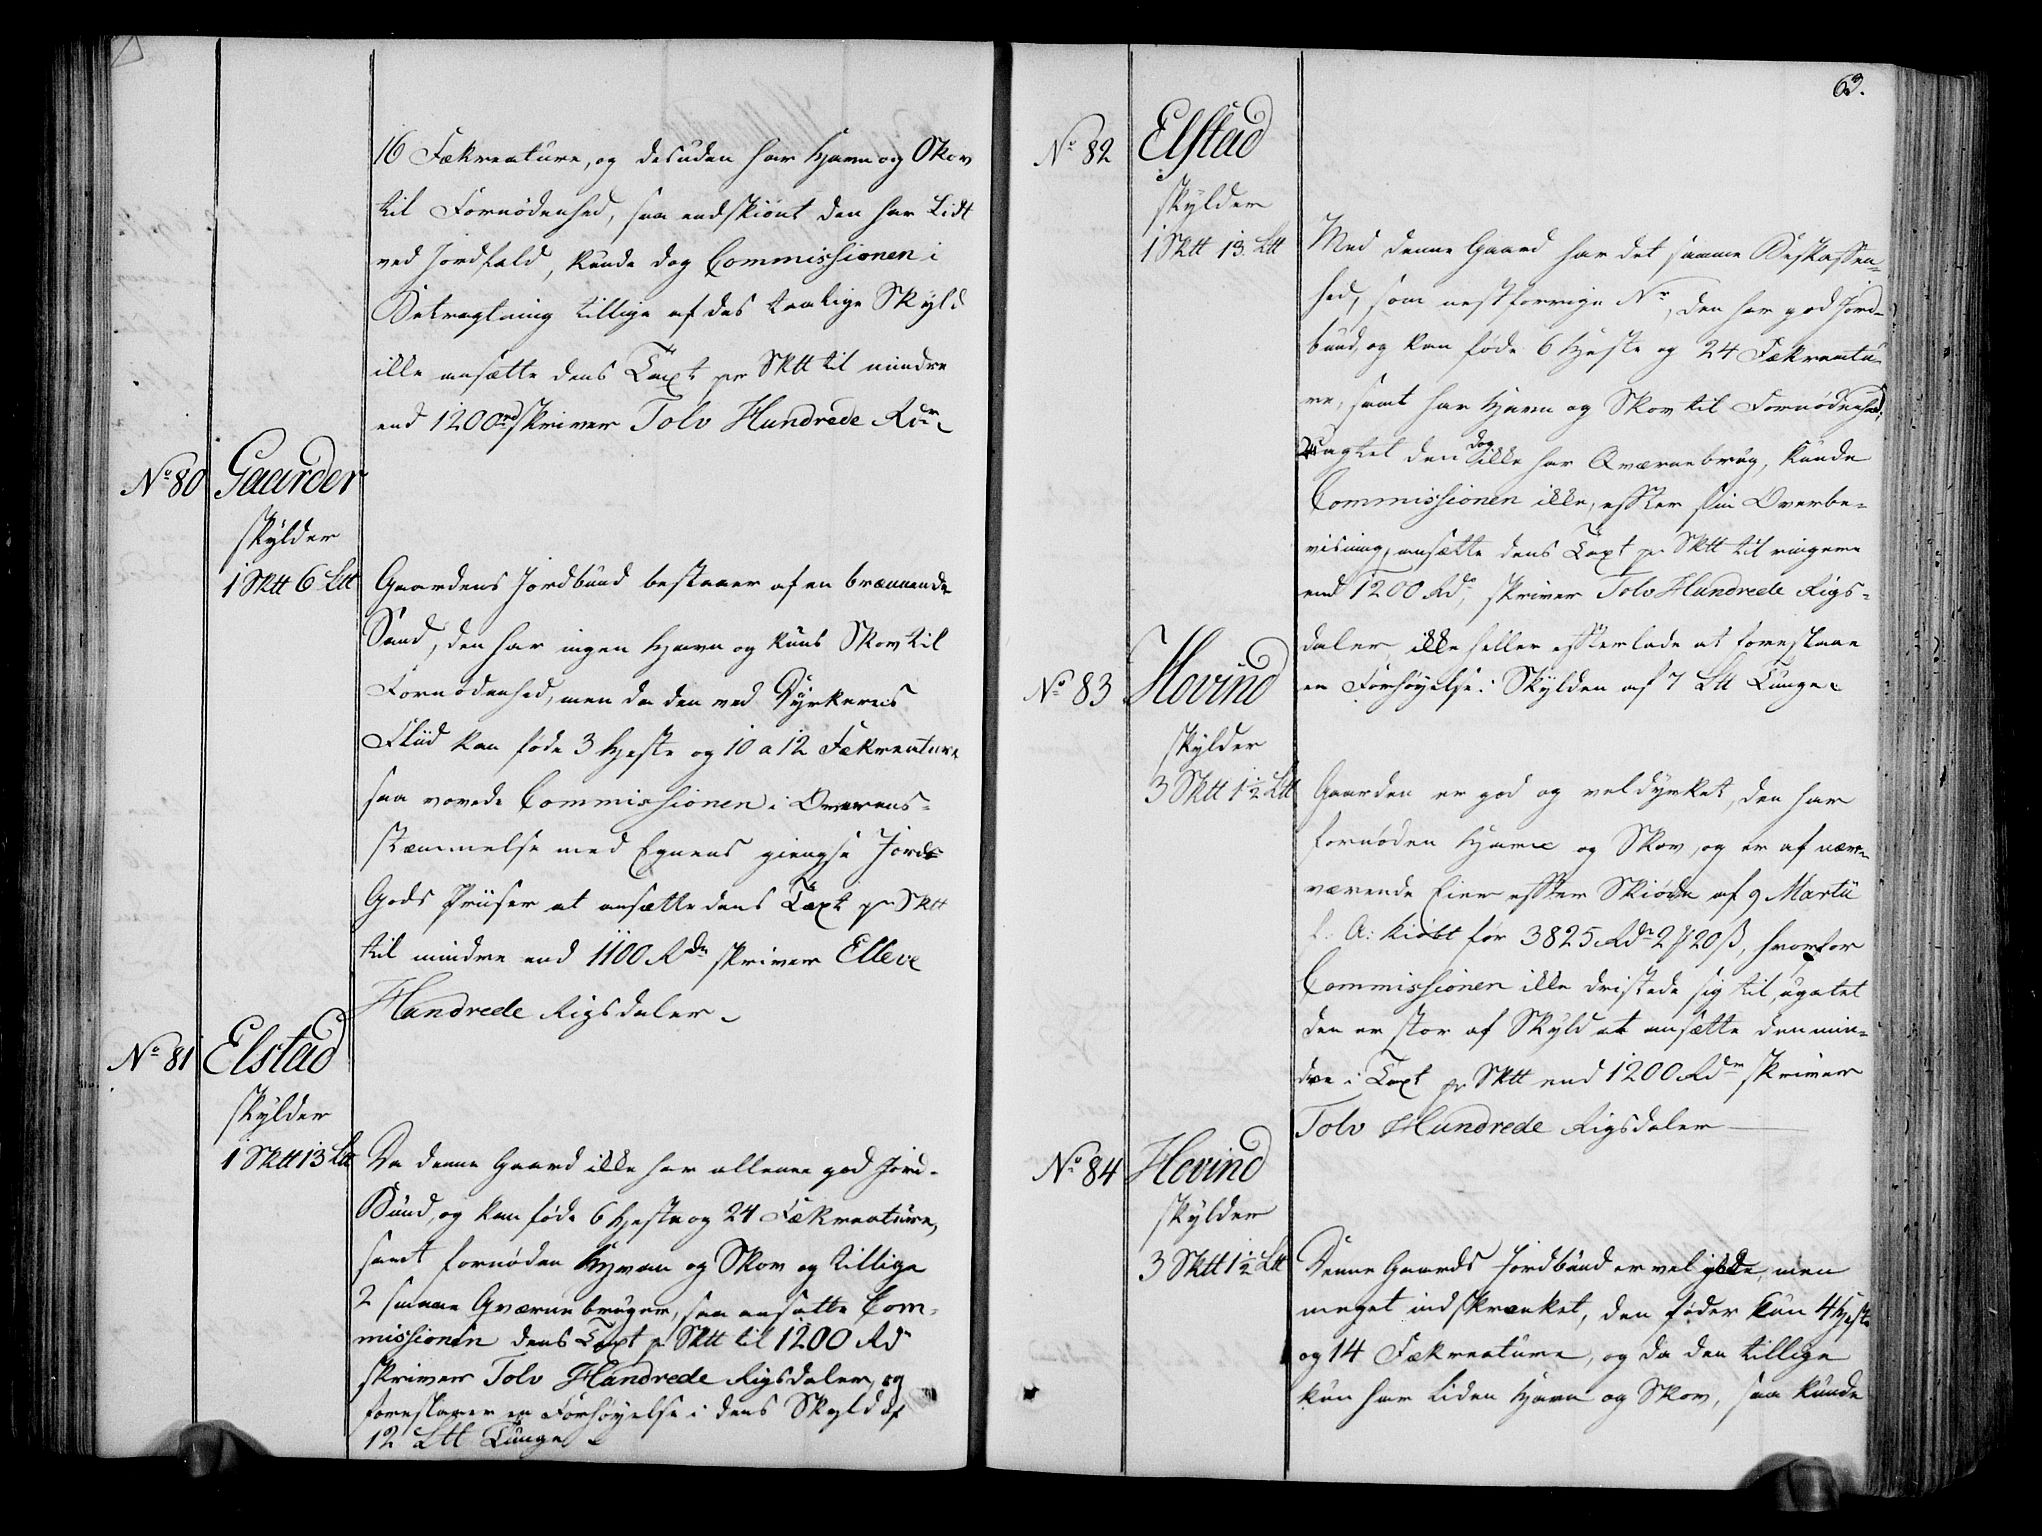 16 Fækreature, og desuden har Havn og Skov
til Fornödenhed, saa endskiönt den har Lidt
ved Jordfald, kunde dog Commissionen i
Betragtning tillige af des taalige Skyld
ikke ansætte dens Taxt pr Sktt til mindre
end 1200rd skriver Tolv Hundrede Rdr
No 80 Gaarder
skylder
1 Sktt 6 Ltt
Gaardens Jordbund bestaaer af en brænnende
Sand, den har ingen Havn og kuns Skov til
Fornødenhed, men da den ved Dyrkerens
Fliid kan føde 3 Heste og 10 a 12 Fækreature
saa vovede Commissionen i Overens-
stæmmelse med Egnens giengse Jorde
Gods Priiser at ansætte dens Taxt pr Sktt
til mindre end 1100 Rdr skriver Elleve
Hundrede Rigsdaler
No 81 Elstad
skylder
1 Sktt 13 Ltt
Da denne Gaard ikke har alleene god Jord-
Bund, og kan føde 6 Heste og 24 Fækreature,
samt fornøden Havn og Skov og tillige
2 smaae Qværnebruger, saa ansatte Com-
missionen dens Taxt pr Sktt til 1200 Rd
skriver Tolv Hundrede Rigsdaler, og
foreslaaer en Forhöyelse i dens Skyld af
12 Ltt Tunge
63.
No 82 Elstad
skylder
1 Sktt 13 Ltt
Med denne Gaard har det samme Beskaffen-
hed, som nestforrige No, den har god Jord-
bund, og kan føde 6 Heste og 24 Fækreatu-
re, samt har Havn og Skov til Fornødenhed,
uagtet den dog ikke har Qværnebrug, kunde
Commissionen ikke, effter sin Overbe-
viisning, ansætte dens Taxt pr Sktt til ringere
end 1200 Rd, skriver Tolv Hundrede Rigs-
daler ikke heller effterlade at foreslaae
en Forhöyelse i Skylden af 7 Ltt Tunge
No 83 Hovind
skylder
3 Sktt 1 1/2 Ltt
Gaarden er god og vel dyrket, den har
fornøden Havn og Skov, og er af nær-
værende Eier effter Skiøde af 9 Martii
f: A: kiøbt for 3825 Rdr 2 # 20 ß, hvorfor
Commissionen ikke dristede sig til, uagtet
den er stor af Skyld at ansætte den min-
dre i Taxt pr Sktt end 1200 Rdr skriver
Tolv Hundrede Rigsdaler
No 84 Hovind
skylder
3 Sktt 1 1/2 Ltt
Denne Gaards Jordbund er vel god, men
meget indskrænket, den føder kun 4 Heste
og 14 Fækreature, og da den tillige
kun har liden Havn og Skov, saa kunde